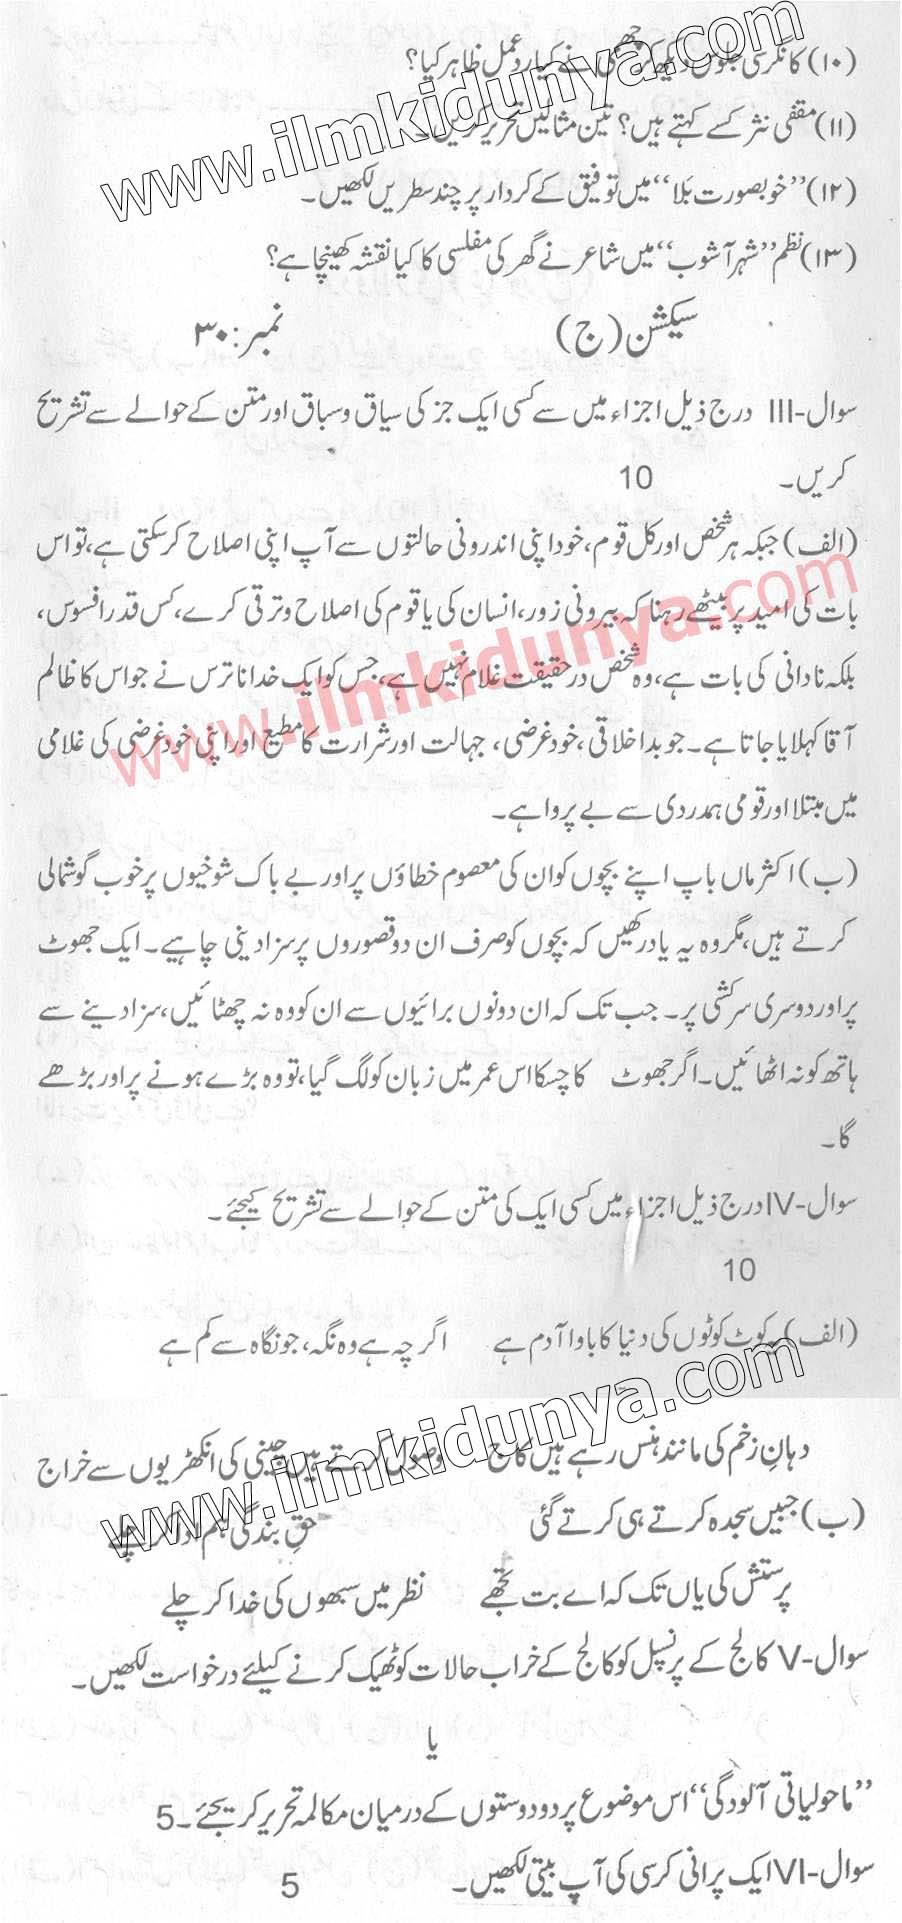 (۱۰) کانگرسی جلوس دیکھ کر چھمی نے کیا ردعمل ظاہر کیا؟
www.ilmkidunya.com
(۱۱) مقفٰی نثر کسے کہتے ہیں؟ تین مثالیں تحریر کریں۔
(۱۲) ”خوبصورت بَلا“ میں توفیق کے کردار پر چند سطریں لکھیں۔
(۱۳) نظم ”شہر آشوب“ میں شاعر نے گھر کی مفلسی کا کیا نقشہ کھینچا ہے؟
سیکشن (ج) نمبر: ۳۰
سوال-III درج ذیل اجزاء میں سے کسی ایک جز کی سیاق و سباق اور متن کے حوالے سے تشریح
کریں۔ 10
(الف) جبکہ ہر شخص اور کل قوم، خود اپنی اندرونی حالتوں سے آپ اپنی اصلاح کر سکتی ہے، تو اس
بات کی امید پر بیٹھے رہنا کہ بیرونی زور، انسان کی یا قوم کی اصلاح و ترقی کرے، کس قدر افسوس،
www.ilmkidunya.com
بلکہ نادانی کی بات ہے، وہ شخص در حقیقت غلام نہیں ہے، جس کو ایک خدا ناترس نے جو اس کا ظالم
آقا کہلایا جاتا ہے۔ جو بداخلاقی، خودغرضی، جہالت اور شرارت کا مطیع اور اپنی خودغرضی کی غلامی
میں مبتلا اور قومی ہمدردی سے بے پروا ہے۔
(ب) اکثر ماں باپ اپنے بچوں کو ان کی معصوم خطاؤں پر اور بے باک شوخیوں پر خوب گوشمالی
کرتے ہیں، مگر وہ یہ یاد رکھیں کہ بچوں کو صرف ان دو قصوروں پر سزا دینی چاہیے۔ ایک جھوٹ
پر اور دوسری سرکشی پر۔ جب تک کہ ان دونوں برائیوں سے ان کو وہ نہ چھٹائیں، سزا دینے سے
ہاتھ کو نہ اٹھائیں۔ اگر جھوٹ کا چسکا اس عمر میں زبان کو لگ گیا، تو وہ بڑے ہونے پر اور بڑھے
گا۔
سوال-IV درج ذیل اجزاء میں کسی ایک کی متن کے حوالے سے تشریح کیجئے۔
10
(الف) یہ کوٹ کوٹوں کی دنیا کا باوا آدم ہے اگرچہ ہے وہ نگہ، جو نگاہ سے کم ہے
www.ilmkidunya.com
دہانِ زخم کی مانند ہنس رہے ہیں کاج وصول کرتے ہیں چینی کی انکھڑیوں سے خراج
(ب) جبیں سجدہ کرتے ہی کرتے گئی حقِ بندگی ہم ادا کر چلے
پرستش کی یاں تک کہ اے بت تجھے نظر میں سبھوں کی خدا کر چلے
سوال-V کالج کے پرنسپل کو کالج کے خراب حالات کو ٹھیک کرنے کیلئے درخواست لکھیں۔
یا
”ماحولیاتی آلودگی“ اس موضوع پر دو دوستوں کے درمیان مکالمہ تحریر کریجئے۔ 5
سوال-VI ایک پرانی کرسی کی آپ بیتی لکھیں۔ 5